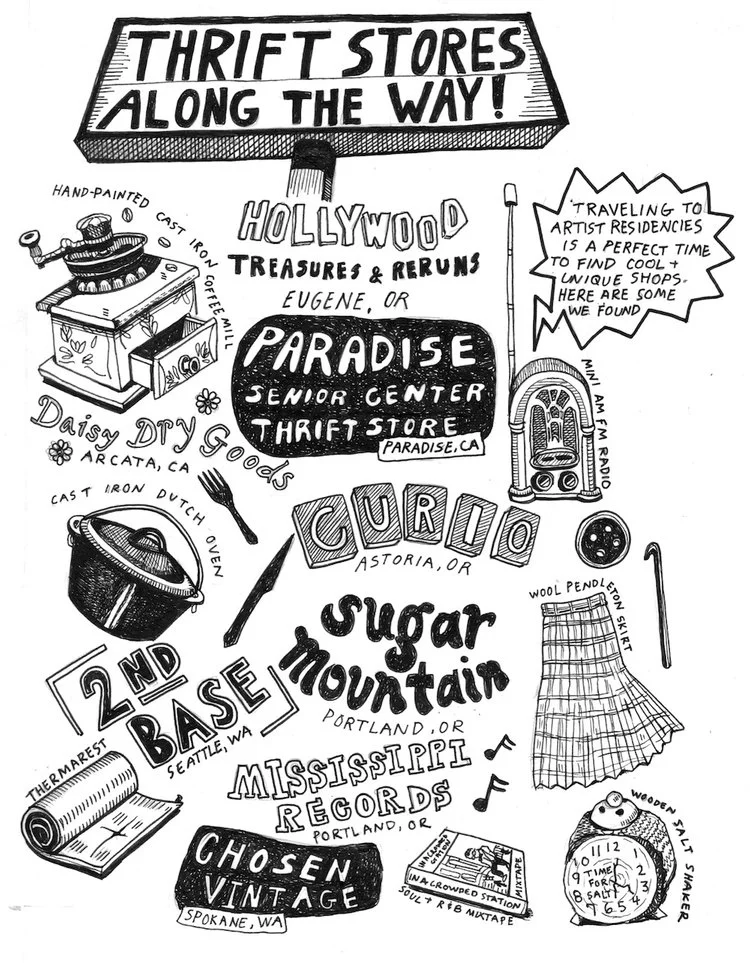 THRIFT STORES
ALONG THE WAY!
HAND-PAINTED CAST IRON COFFEE MILL
HOLLYWOOD
TREASURES & RERUNS
EUGENE, OR
TRAVELING TO
ARTIST RESIDENCIES
IS A PERFECT TIME
TO FIND COOL +
UNIQUE SHOPS.
HERE ARE SOME
WE FOUND
PARADISE
SENIOR CENTER
THRIFT STORE
PARADISE, CA
MINI AM FM RADIO
Daisy Dry Goods
ARCATA, CA
CAST IRON DUTCH OVEN
CURIO
ASTORIA, OR
WOOL PENDLETON SKIRT
sugar
mountain
PORTLAND, OR
2ND
BASE
SEATTLE, WA
THERMAREST
MISSISSIPPI
RECORDS
PORTLAND, OR
CHOSEN
VINTAGE
SPOKANE, WA
IN A CROWDED
STATION
MIXTAPE
IN A CROWDED STATION
SOUL + R&B MIXTAPE
WOODEN SALT SHAKER
10 11 12 1
9 2
8 3
7 6 5 4
TIME
FOR
SALT!